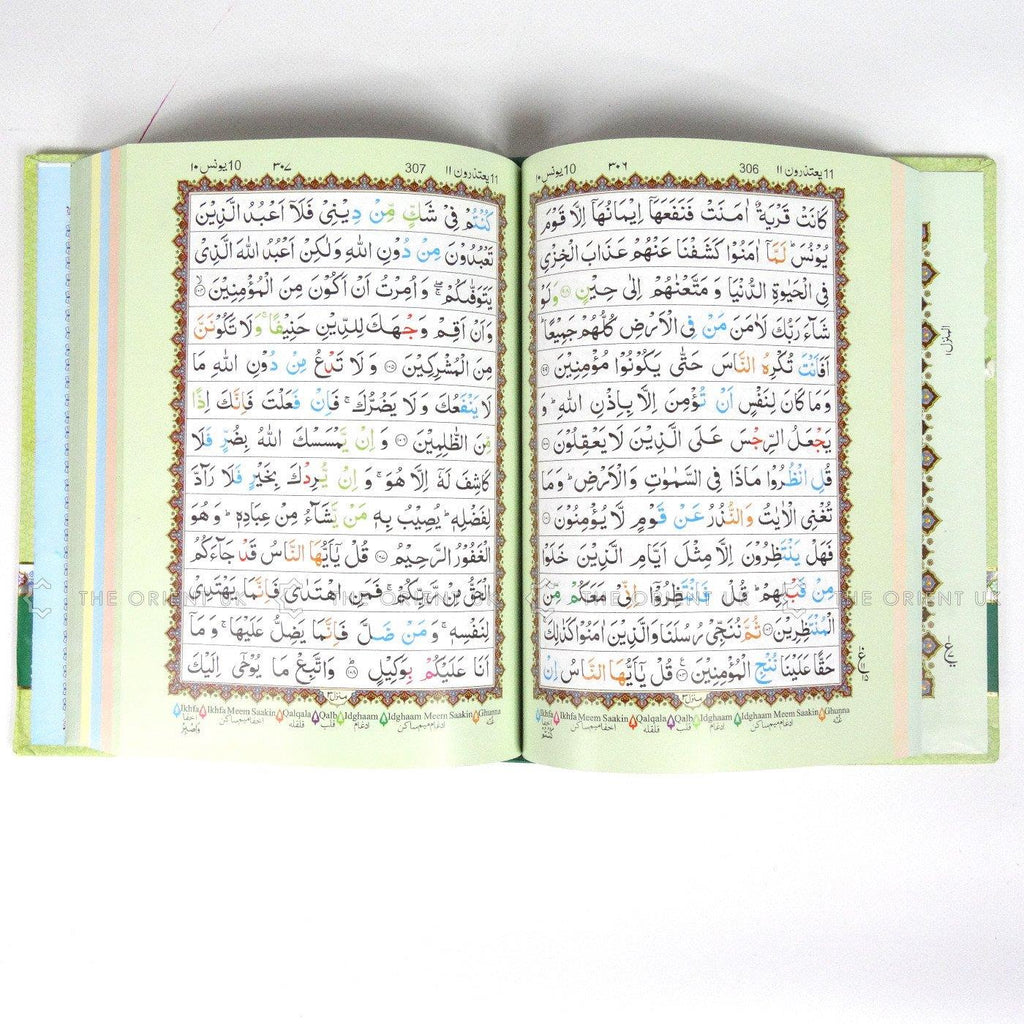 11 يعتذرون ١١ 306 ٣٠٦ 10 يونس ١٠
كَانَتْ قَرْيَةٌ اٰمَنَتْ فَنَفَعَهَاۤ اِيْمَانُهَاۤ اِلَّا قَوْمَ
يُوْنُسَ ؕ لَمَّاۤ اٰمَنُوْا كَشَفْنَا عَنْهُمْ عَذَابَ الْخِزْيِ
فِي الْحَيٰوةِ الدُّنْيَا وَ مَتَّعْنٰهُمْ اِلٰى حِيْنٍ ﴿٩٨﴾ وَ لَوْ
شَآءَ رَبُّكَ لَاٰمَنَ مَنْ فِي الْاَرْضِ كُلُّهُمْ جَمِيْعًا ؕ
اَفَاَنْتَ تُكْرِهُ النَّاسَ حَتّٰى يَكُوْنُوْا مُؤْمِنِيْنَ ﴿٩٩﴾
وَ مَا كَانَ لِنَفْسٍ اَنْ تُؤْمِنَ اِلَّا بِاِذْنِ اللّٰهِ ؕ وَ
يَجْعَلُ الرِّجْسَ عَلَى الَّذِيْنَ لَا يَعْقِلُوْنَ ﴿١٠٠﴾
قُلِ انْظُرُوْا مَاذَا فِي السَّمٰوٰتِ وَ الْاَرْضِ ؕ وَ مَا
تُغْنِي الْاٰيٰتُ وَ النُّذُرُ عَنْ قَوْمٍ لَّا يُؤْمِنُوْنَ ﴿١٠١﴾
فَهَلْ يَنْتَظِرُوْنَ اِلَّا مِثْلَ اَيَّامِ الَّذِيْنَ خَلَوْا
مِنْ قَبْلِهِمْ ؕ قُلْ فَانْتَظِرُوْۤا اِنِّيْ مَعَكُمْ مِّنَ
الْمُنْتَظِرِيْنَ ﴿١٠٢﴾ ثُمَّ نُنَجِّيْ رُسُلَنَا وَ الَّذِيْنَ اٰمَنُوْا كَذٰلِكَ ۚ
حَقًّا عَلَيْنَا نُنْجِ الْمُؤْمِنِيْنَ ﴿١٠٣﴾ قُلْ يٰۤاَيُّهَا النَّاسُ اِنْ
منزل ٣
Ikhfa Ikhfa Meem Saakin Qalqala Qalb Idghaam Idghaam Meem Saakin Ghunna
اخفا اخفا میم ساکن قلقله قلب ادغام ادغام میم ساکن غنه
11 يعتذرون ١١ 307 ٣٠٧ 10 يونس ١٠
كُنْتُمْ فِيْ شَكٍّ مِّنْ دِيْنِيْ فَلَاۤ اَعْبُدُ الَّذِيْنَ
تَعْبُدُوْنَ مِنْ دُوْنِ اللّٰهِ وَ لٰكِنْ اَعْبُدُ اللّٰهَ الَّذِيْ
يَتَوَفّٰىكُمْ ۖۚ وَ اُمِرْتُ اَنْ اَكُوْنَ مِنَ الْمُؤْمِنِيْنَ ﴿١٠٤﴾ۙ
وَ اَنْ اَقِمْ وَجْهَكَ لِلدِّيْنِ حَنِيْفًا ۚ وَ لَا تَكُوْنَنَّ
مِنَ الْمُشْرِكِيْنَ ﴿١٠٥﴾ وَ لَا تَدْعُ مِنْ دُوْنِ اللّٰهِ مَا
لَا يَنْفَعُكَ وَ لَا يَضُرُّكَ ۚ فَاِنْ فَعَلْتَ فَاِنَّكَ اِذًا
مِّنَ الظّٰلِمِيْنَ ﴿١٠٦﴾ وَ اِنْ يَّمْسَسْكَ اللّٰهُ بِضُرٍّ فَلَا
كَاشِفَ لَهٗۤ اِلَّا هُوَ ۚ وَ اِنْ يُّرِدْكَ بِخَيْرٍ فَلَا رَآدَّ
لِفَضْلِهٖ ؕ يُصِيْبُ بِهٖ مَنْ يَّشَآءُ مِنْ عِبَادِهٖ ؕ وَ هُوَ
الْغَفُوْرُ الرَّحِيْمُ ﴿١٠٧﴾ قُلْ يٰۤاَيُّهَا النَّاسُ قَدْ جَآءَكُمُ
الْحَقُّ مِنْ رَّبِّكُمْ ۚ فَمَنِ اهْتَدٰى فَاِنَّمَا يَهْتَدِيْ
لِنَفْسِهٖ ۚ وَ مَنْ ضَلَّ فَاِنَّمَا يَضِلُّ عَلَيْهَا ۚ وَ مَاۤ
اَنَا عَلَيْكُمْ بِوَكِيْلٍ ﴿١٠٨﴾ؕ وَ اتَّبِعْ مَا يُوْحٰۤى اِلَيْكَ
منزل ٣
Ikhfa Ikhfa Meem Saakin Qalqala Qalb Idghaam Idghaam Meem Saakin Ghunna
اخفا اخفا میم ساکن قلقله قلب ادغام ادغام میم ساکن غنه
وَاصْبِرْ
THE ORIENT UK THE ORIENT UK THE ORIENT UK